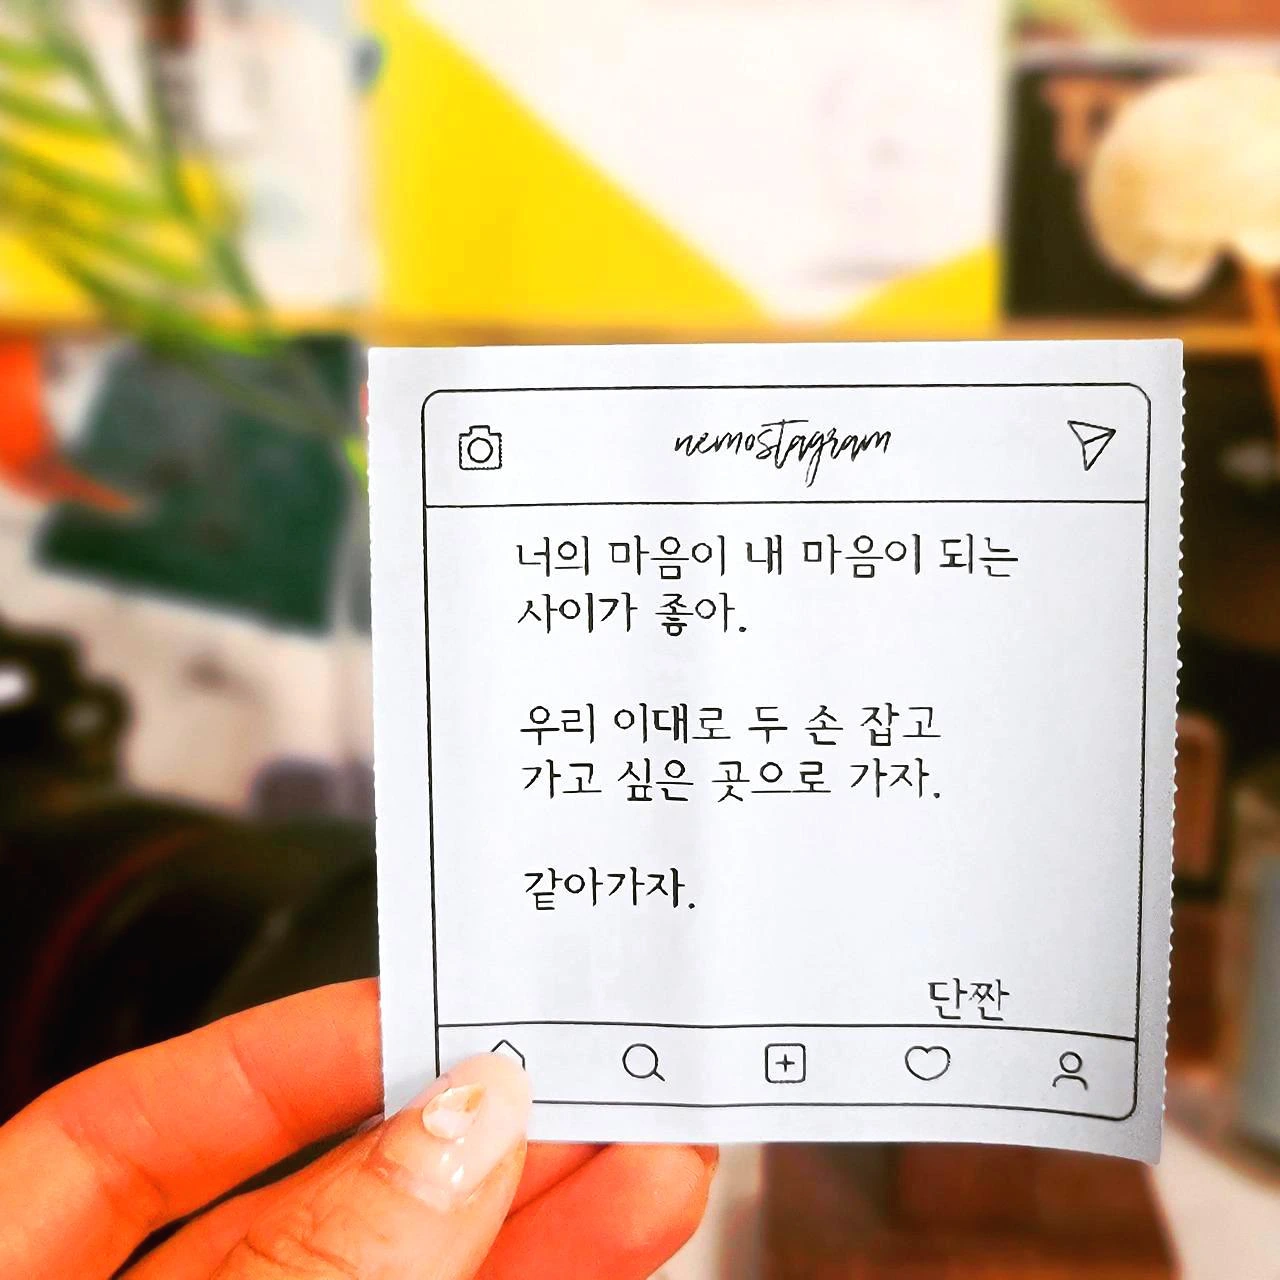 nemostagram
너의 마음이 내 마음이 되는
사이가 좋아.
우리 이대로 두 손 잡고
가고 싶은 곳으로 가자.
같아가자.
단짠